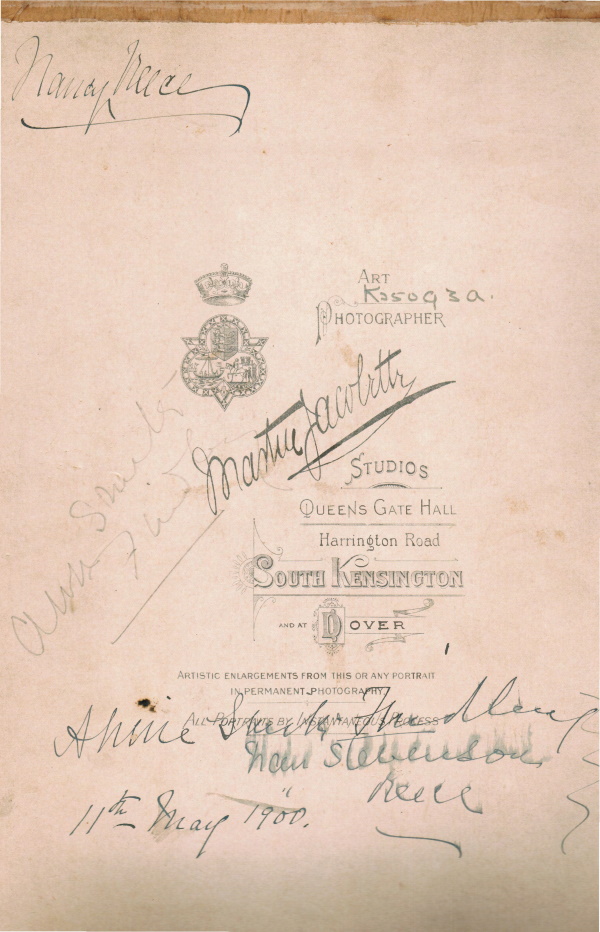 Nancy Reece
ART
K25093a.
PHOTOGRAPHER
Martin Jacolette
STUDIOS
QUEENS GATE HALL
Harrington Road
SOUTH KENSINGTON
AND AT DOVER
ARTISTIC ENLARGEMENTS FROM THIS OR ANY PORTRAIT
IN PERMANENT PHOTOGRAPHY
ALL PORTRAITS BY INSTANTANEOUS PROCESS
Stevenson
Reece
11th May 1900.